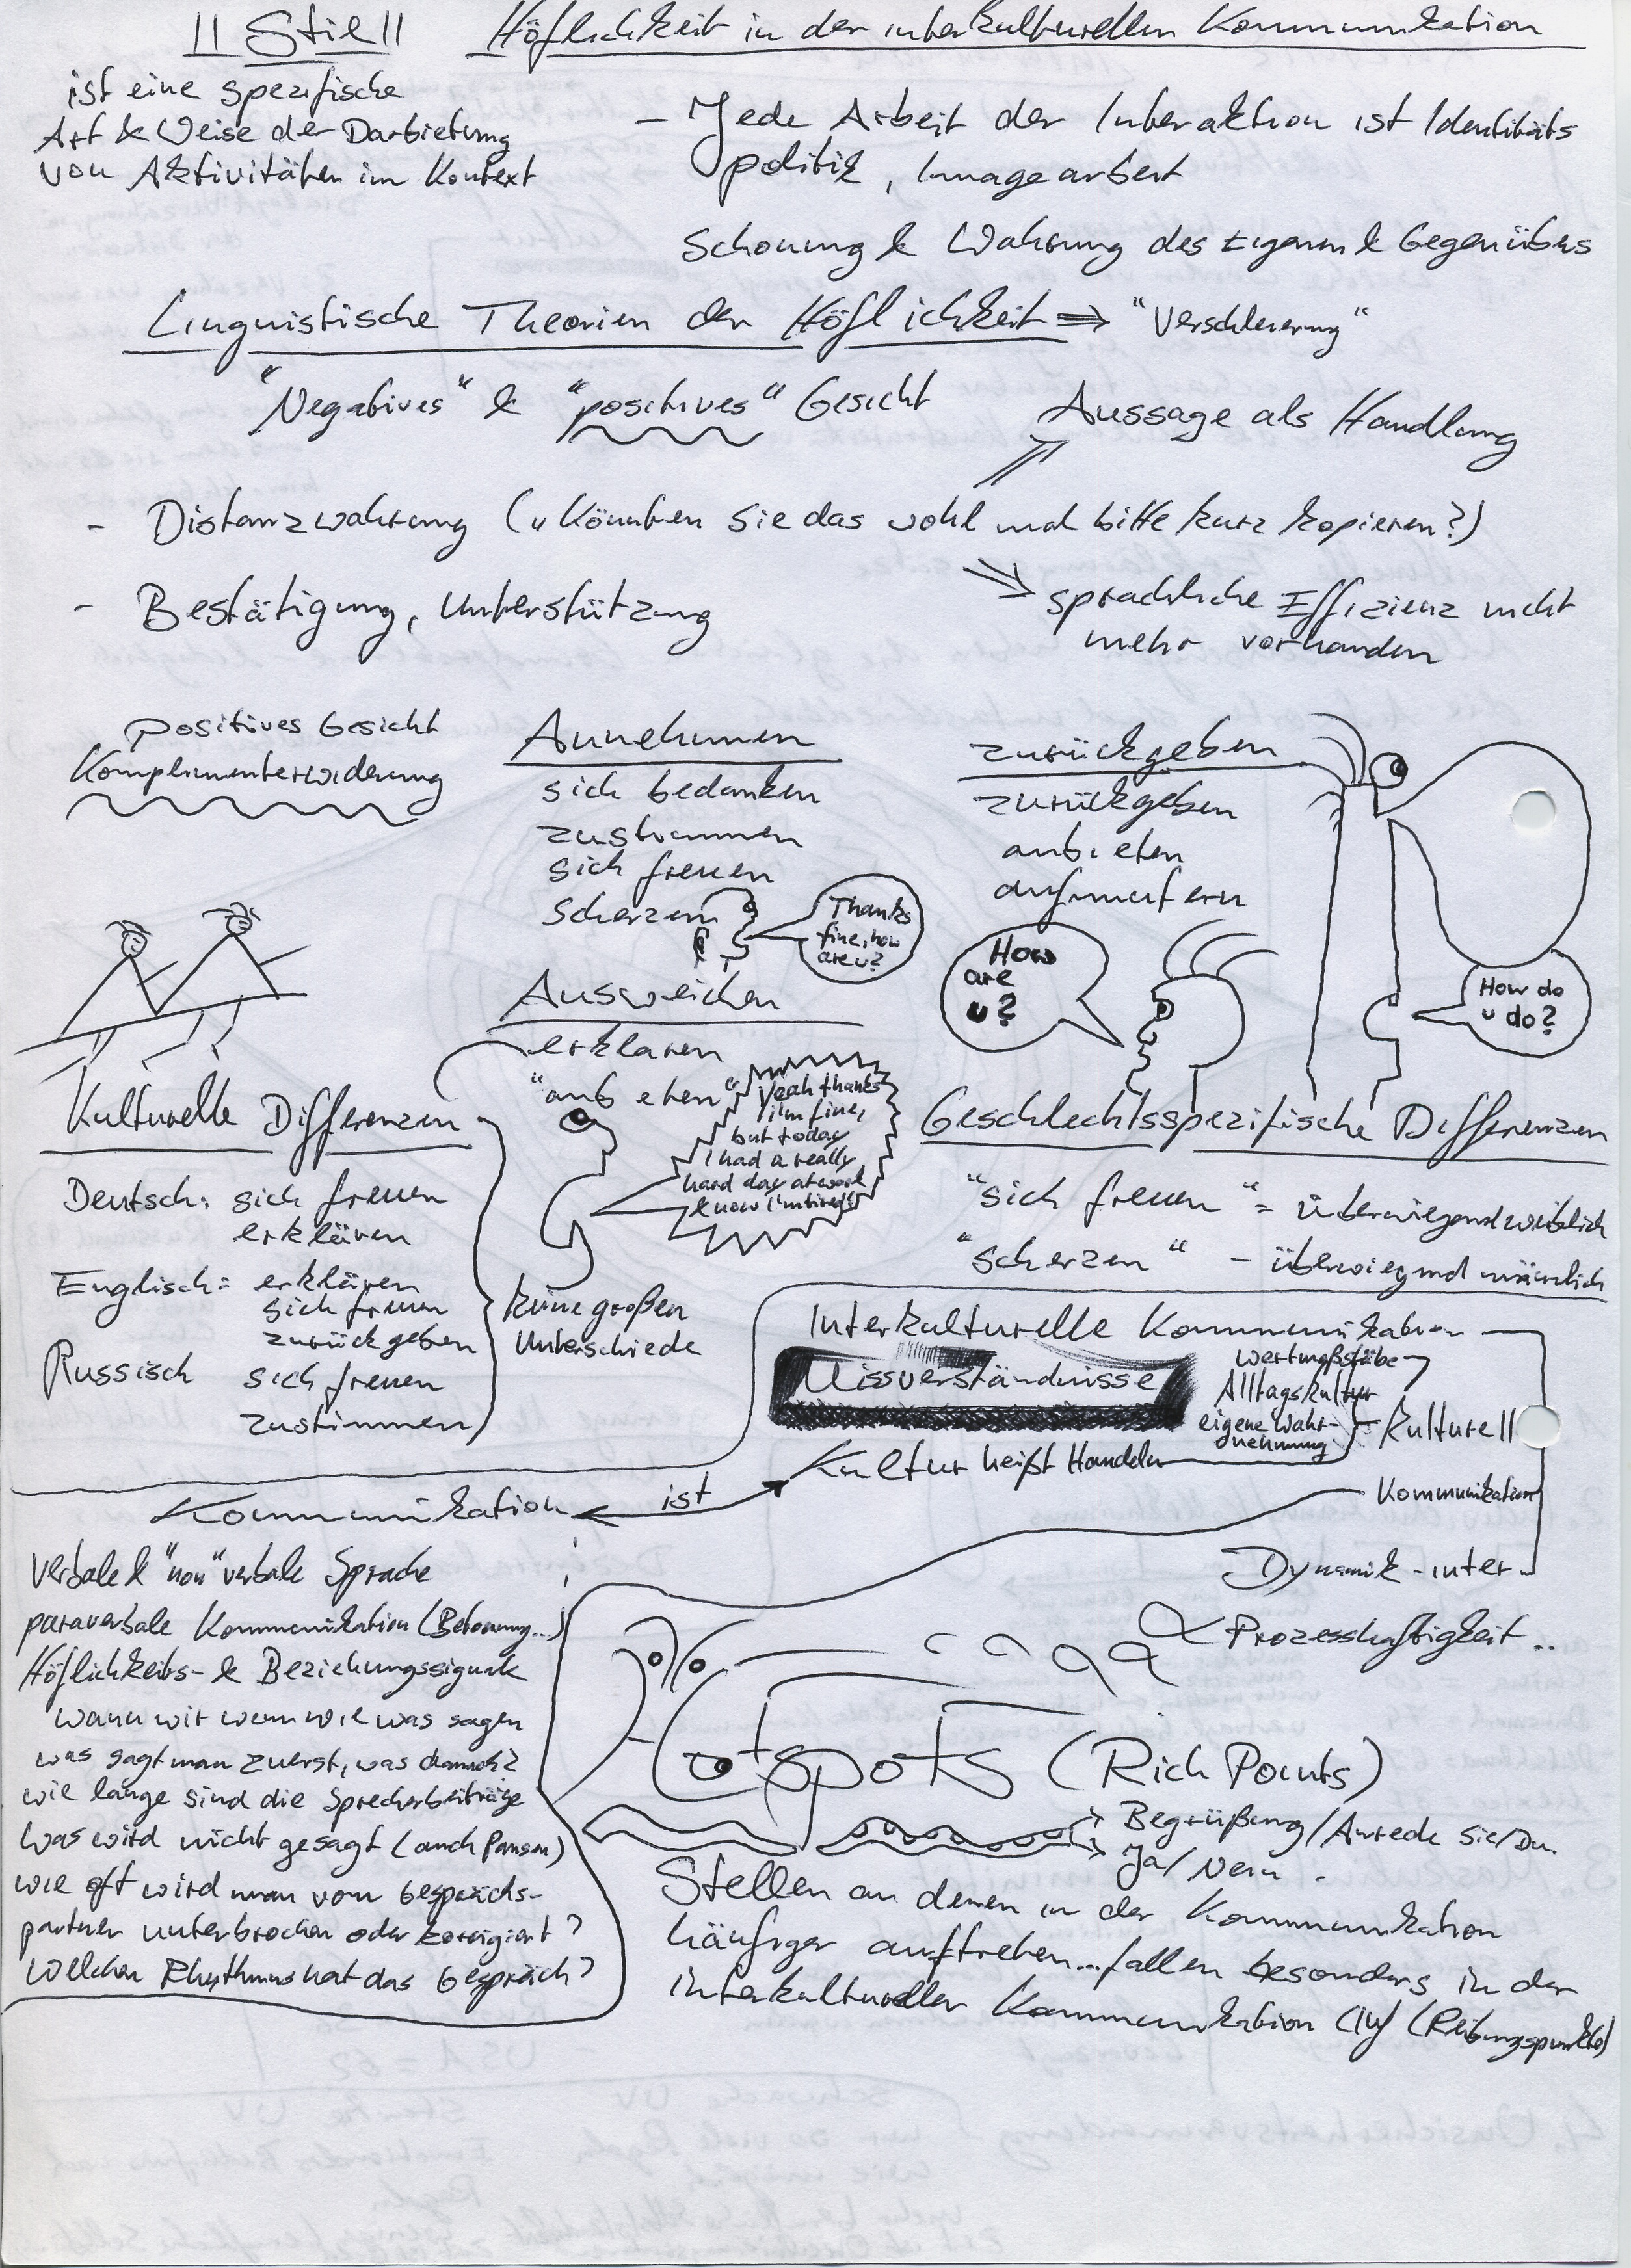 || Stil ||
ist eine spezifische
Art & Weise der Darbietung
von Aktivitäten im Kontext
Höflichkeit in der interkulturellen Kommunikation
- Jede Arbeit der Interaktion ist Identitäts
politik, Imagearbeit
Schonung & Wahrung des Eigenen & Gegenübers
Linguistische Theorien der Höflichkeit ⇒ "Verschleierung"
"Negatives" & "positives" Gesicht
Aussage als Handlung
- Distanzwahrung („Könnten Sie das wohl mal bitte kurz kopieren?)
sprachliche Effizienz nicht
mehr vorhanden
- Bestätigung, Unterstützung
positives Gesicht
Komplimenterwiderung
Annehmen
sich bedanken
zustimmen
sich freuen
scherzen
Thanks
fine, how
are u?
zurückgeben
zurückgeben
anbieten
aufmuntern
How
are
u?
How do
u do?
Ausweichen
erklären
"anbieten"
Yeah thanks
I'm fine,
but today
I had a really
hard day at work
know I'm tired!
Kulturelle Differenzen
Deutsch: sich freuen
erklären
Englisch: erklären
sich freuen
zurückgeben
Russisch sich freuen
zustimmen
keine großen
Unterschiede
Geschlechtsspezifische Differenzen
"sich freuen" = überwiegend weiblich
"scherzen" - überwiegend männlich
Interkulturelle Kommunikation
Missverständnisse
Wertungsstäbe
Alltagskultur
eigene Wahr-
nehmung
Kulturell
Kultur heißt Handeln
Kommunikation
Dynamik - inter
Prozesshaftigkeit ..
Kommunikation
ist
Verbale & "non" verbale Sprache
paraverbale Kommunikation (Betonung...)
Höflichkeits- & Beziehungssignale
wann wir wem wie was sagen
was sagt man zuerst, was danach?
wie lange sind die Sprecherbeiträge
Was wird nicht gesagt (auch Pausen)
wie oft wird man vom Gesprächs-
partner unterbrochen oder korrigiert?
Welchen Rhythmus hat das Gespräch?
Hotspots (Rich Points)
Begrüßung/Anrede Sie/Du.
Ja/Nein .
Stellen an denen in der Kommunikation
häufiger auftreten...fallen besonders in der
interkultureller Kommunikation auf (Reibungspunkte)